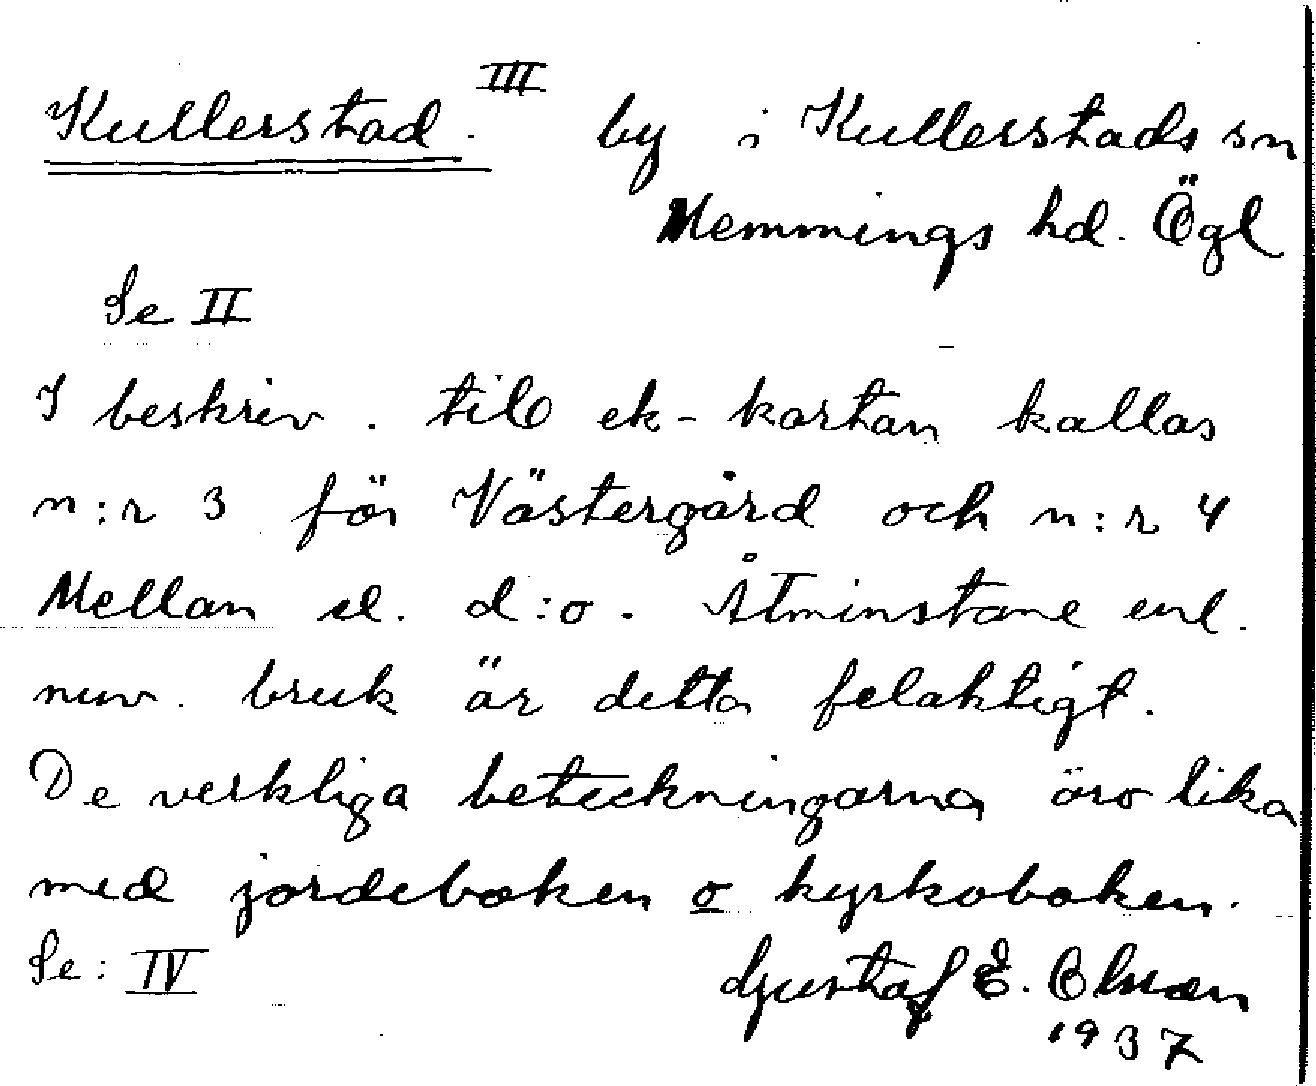 Kullerstad. III by i Kullerstads sn
Memmings hd. Ögl
Se II
I beskriv. till ek-kartan kallas
n:r 3 för Västergård och n:r 4
Mellan el. d:o. Åtminstone enl.
nuv. bruk är detta felaktigt.
De verkliga beteckningarna äro lika
med jordeboken o kyrkoboken.
Se: IV Gustaf E.
1937